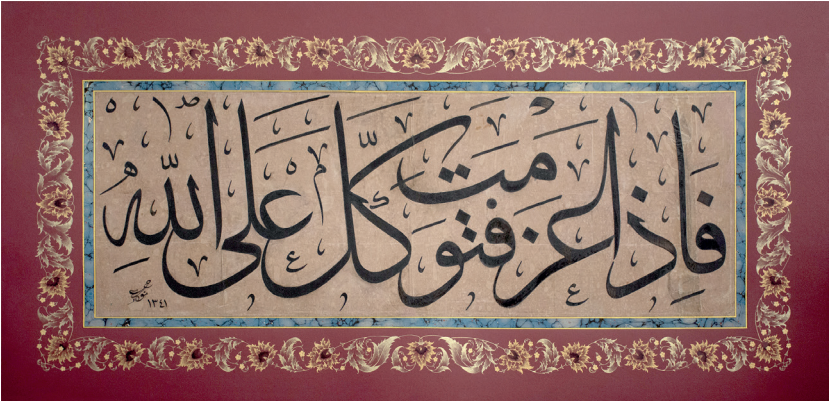 فَاِذا عزمتَ فتوكَّل عَلى اللّٰهِ
١٣٤١